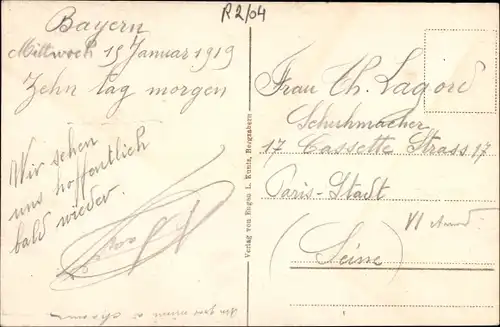 R2/04
Bayern
Mittwoch 15 Januar 1919
Zehn tag morgen
Wir sehen
uns hoffentlich
bald wieder.
Verlag von Eugen L. Kuntz, Bergzabern
Frau Th. Lagord
Schuhmacher
17 Cassette Strass 17
Paris-Stadt
VI
(Seine)